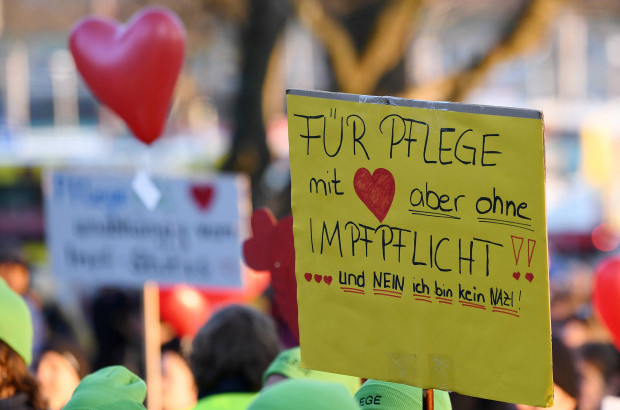 FÜR PFLEGE
mit ♥ aber ohne
IMPFPFLICHT!!
♥♥♥ und NEIN ich bin kein NAZI!
Pflege
EGE